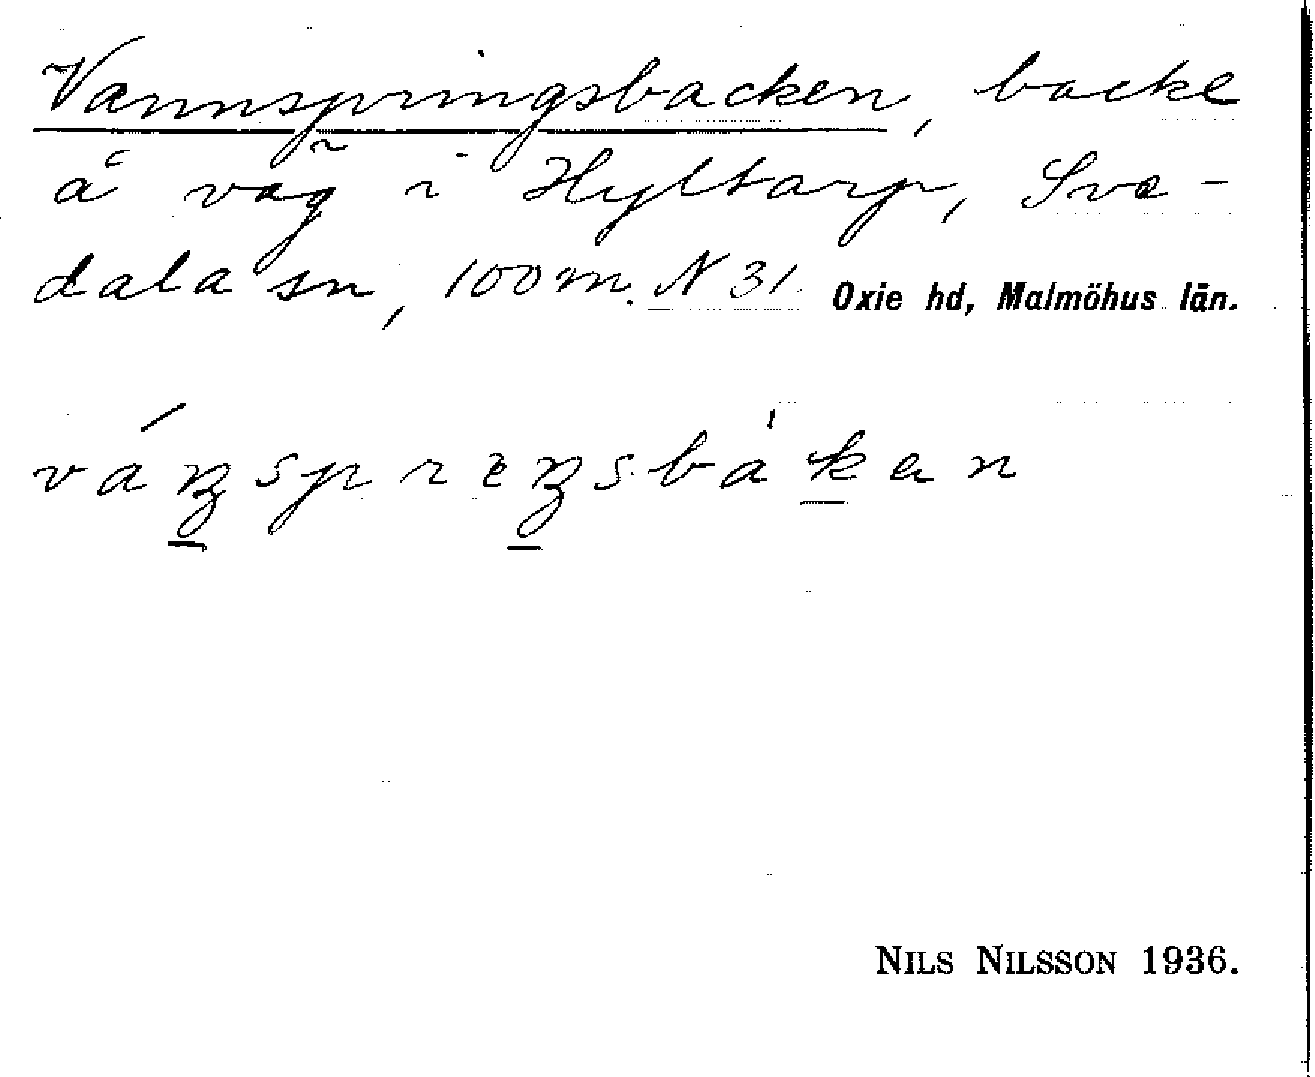 Vannspringsbacken, backe
å väg i Hyltarp, Sve-
dala sn, 100 m. N 31. Oxie hd, Malmöhus län.
NILS NILSSON 1936.